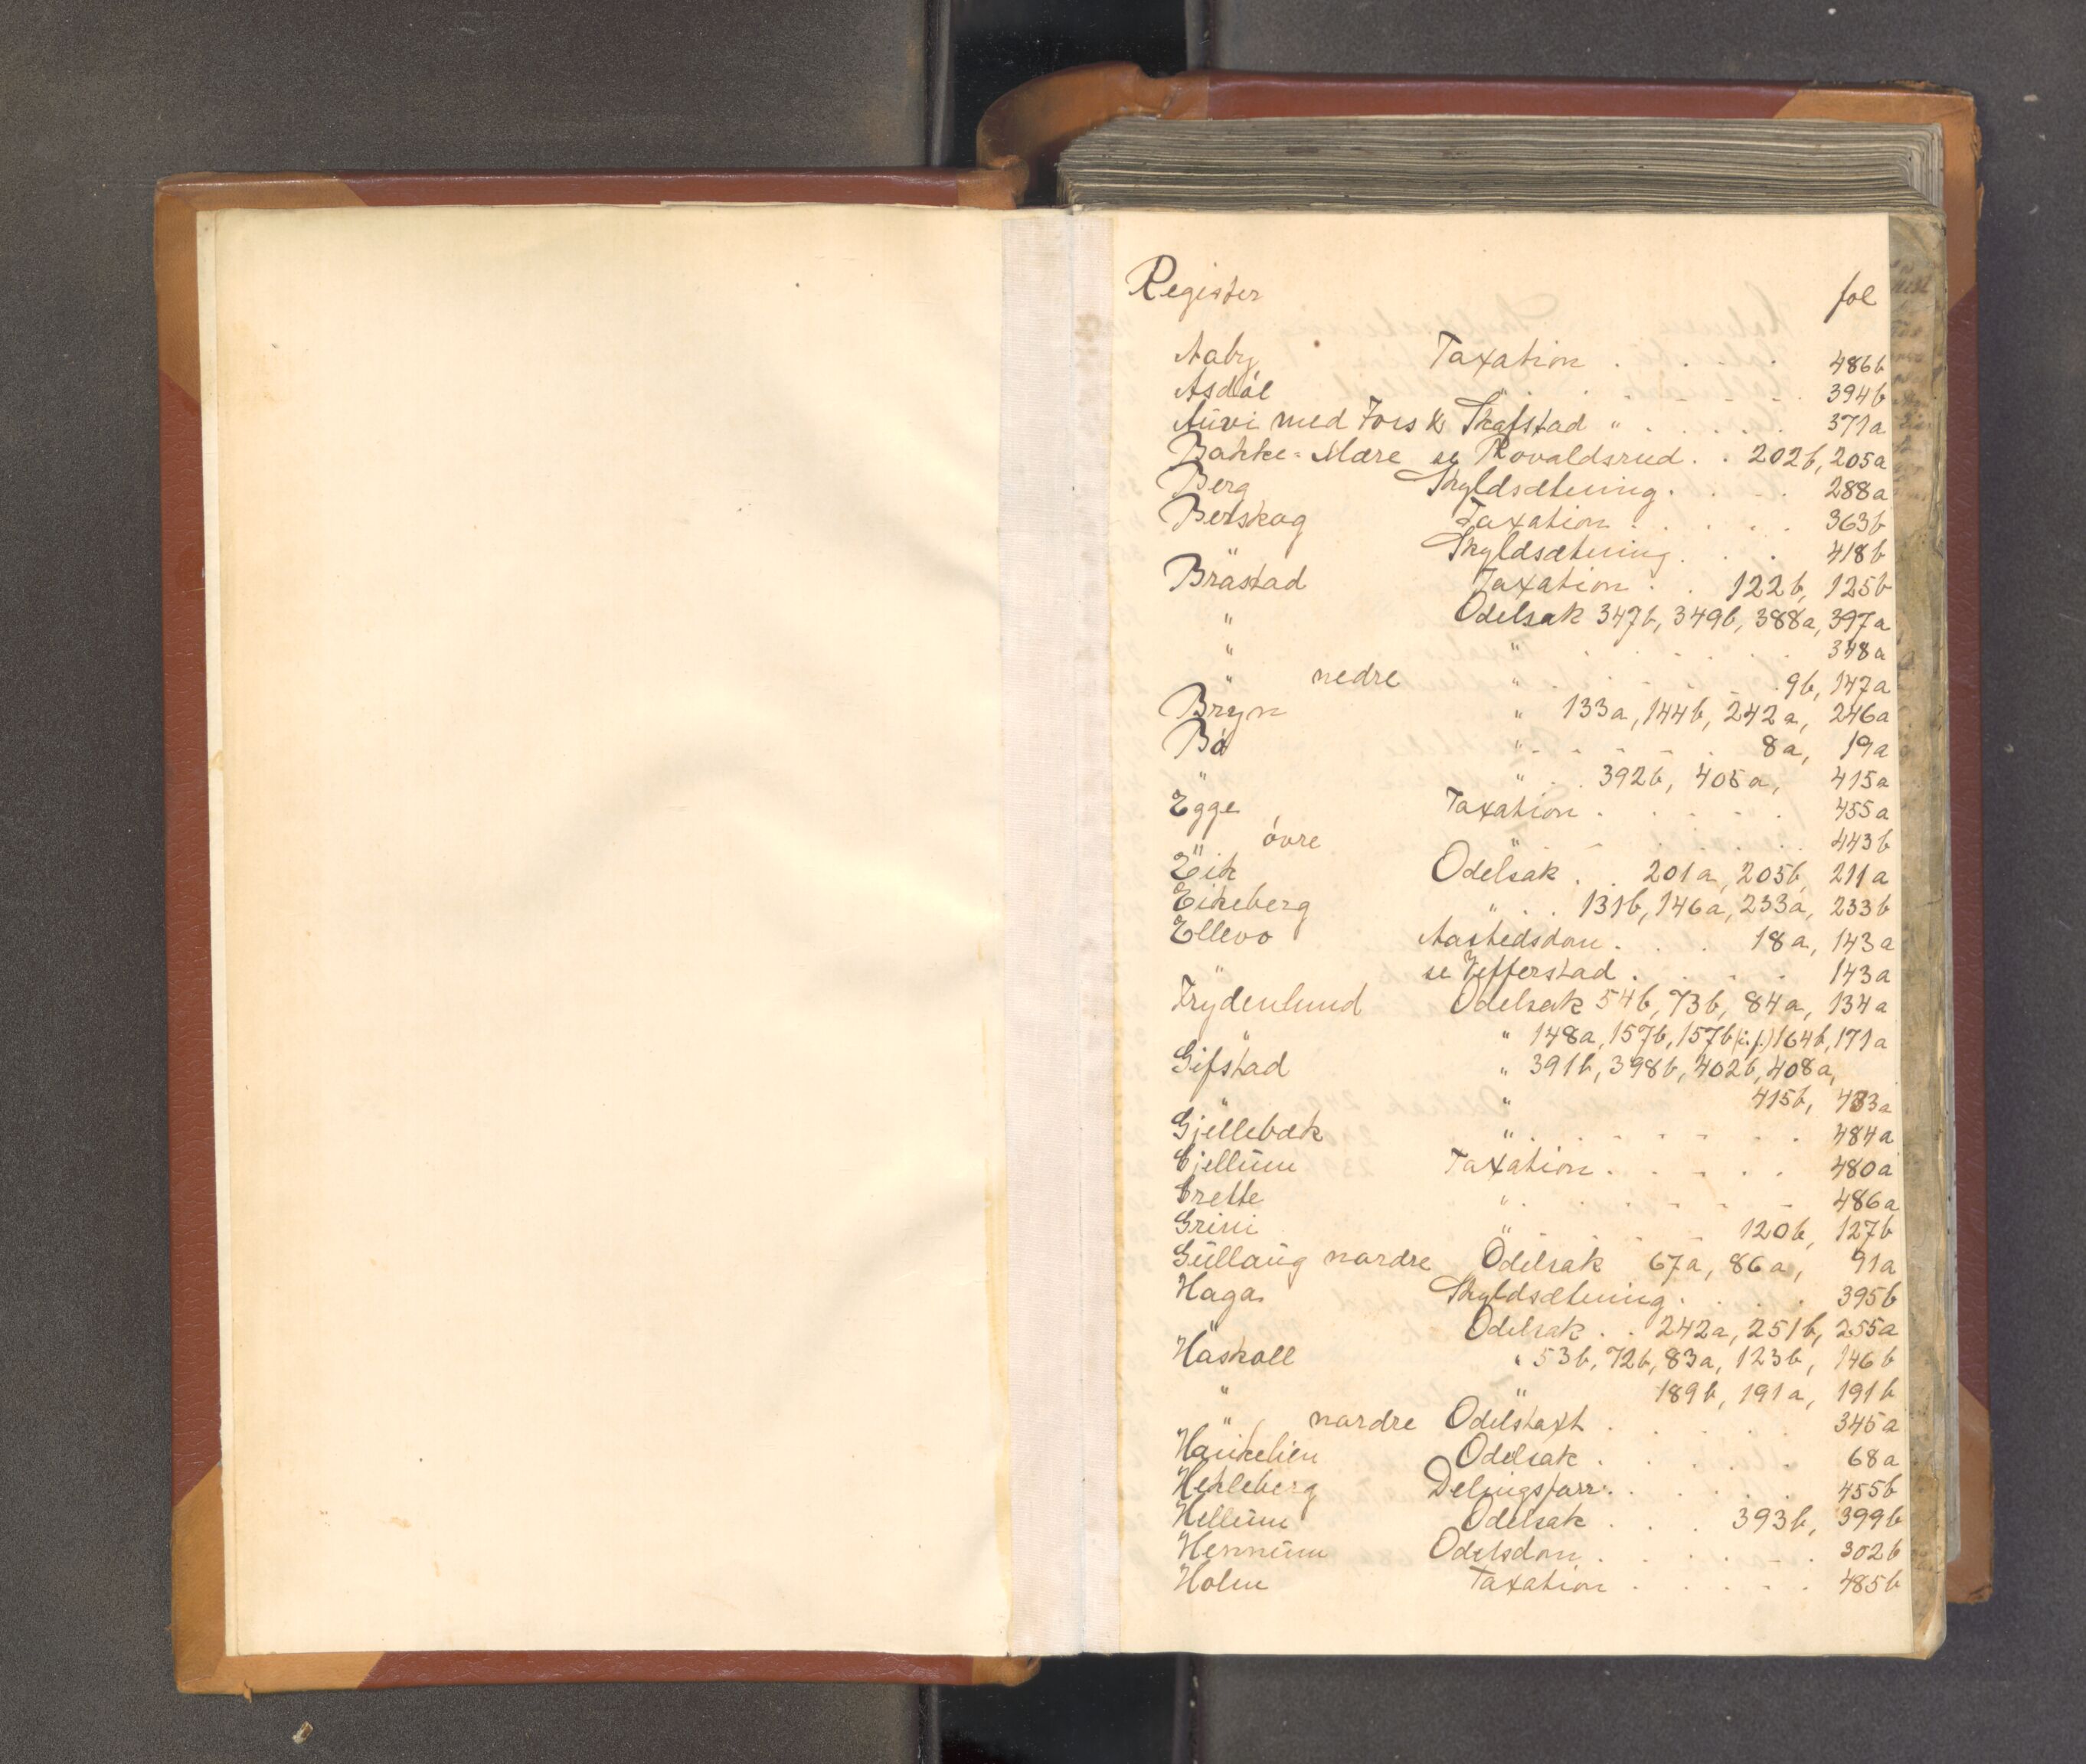 Register fol
Aaby Taxation . . . . . 486b
Asdøl " . . . . . . 394b
Auvi med Fors & Skafstad " . . . . . 371a
Bakke-Mære se Rovaldsrud . . 202b, 205a
Berg Skyldsætning . . . . 288a
Berskog Taxation . . . . . 363b
Skyldsætning . . . 418b
Bråstad Taxation . . 122b, 125b
" Odelsak 347b, 349b, 388a, 397a
" " . . . . . . 348a
" nedre " . . . . . . 9b, 147a
Bryn " 133a, 144b, 242a, 246a
Bø " . . . . . . 8a, 19a
" " . . 392b, 405a, 415a
Egge Taxation . . . . . 455a
" øvre " . . . . . . 443b
Eik Odelsak . . 201a, 205b, 211a
Eikeberg " . . 131b, 146a, 233a, 233b
Ellevo Aastedsdom . . . 18a, 143a
" se Vefferstad . . . . . 143a
Frydenlund Odelsak 54b, 73b, 84a, 134a
" " 148a, 157b, 157b (i.f.) 164b, 171a
Gifstad " 391b, 398b, 402b, 408a,
" " 415b, 433a
Gjellebæk " . . . . . . . 484a
Gjellum Taxation . . . . . 480a
Grette " . . . . . . 486a
Grini " . . . . . 120b, 127b
Gullaug nordre Odelsak 67a, 86a, 91a
Haga Skyldsætning . . . . 395b
" Odelsak . . 242a, 251b, 255a
Haskoll " 53b, 72b, 83a, 123b, 146b
" " 189b, 191a, 191b
" nordre Odelstaxt . . . . . 345a
Haukelien Odelsak . . . . . 68a
Hekleberg Delingsforr. . . . . . 455b
Hellum Odelsak . . . 393b, 399b
Hennum Odelsdom . . . . . . 302b
Holm Taxation . . . . . 485b